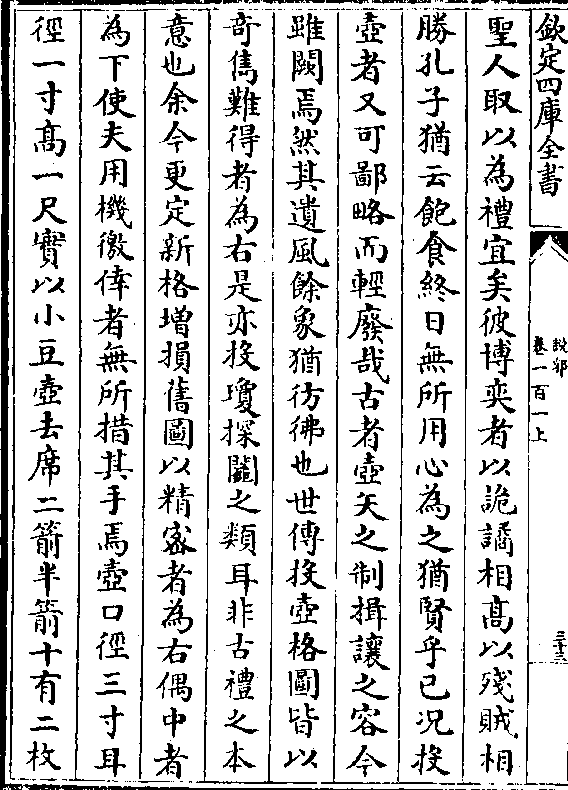 欽定四庫全書
說郛
卷一百一上
三十三
聖人取以為禮宜矣彼博奕者以詭譎相高以殘賊相
勝孔子猶云飽食終日無所用心為之猶賢乎已况投
壺者又可鄙略而輕廢哉古者壺矢之制揖讓之容今
雖闕焉然其遺風餘象猶彷彿也世傳投壺格圖皆以
竒雋難得者為右是亦投瓊探鬮之類耳非古禮之本
意也余今更定新格增損舊圖以精宻者為右偶中者
為下使夫用機徼倖者無所措其手焉壺口徑三寸耳
徑一寸髙一尺實以小豆壺去席二箭半箭十有二枚